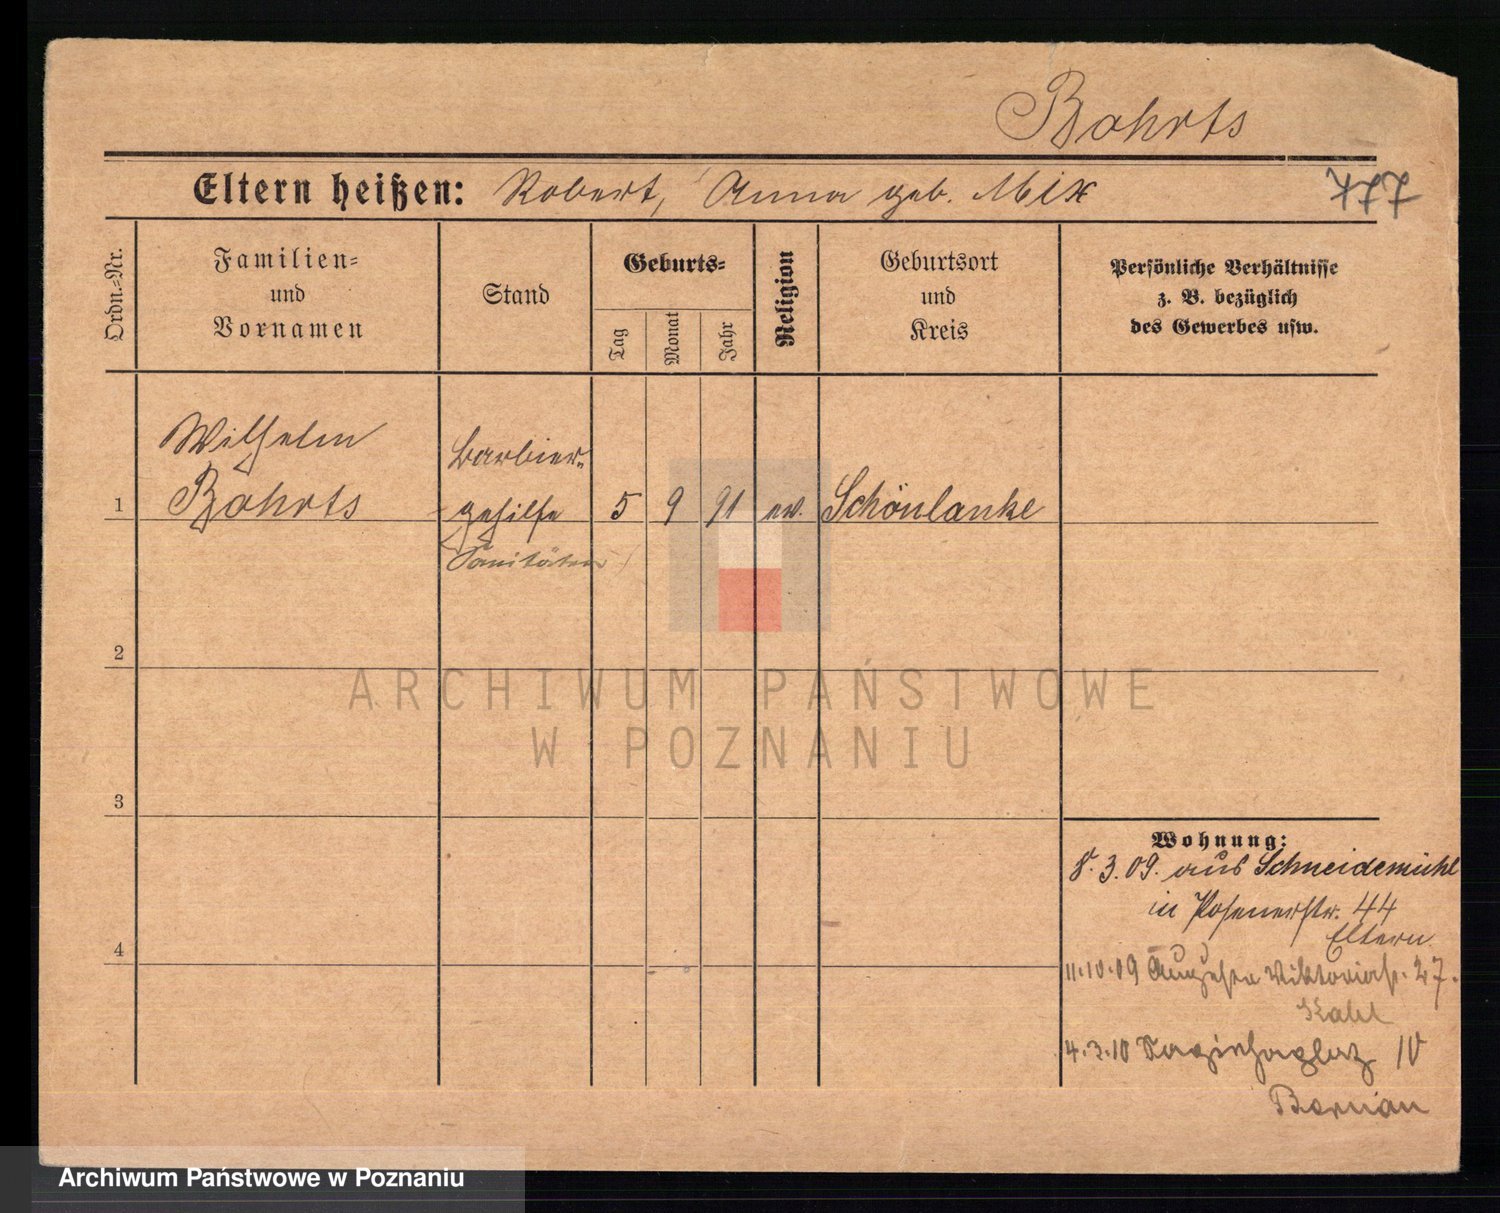 Bohrts
Eltern heißen: Robert, Anna geb. Mix
Ordn.-Nr.
Familien=
und
Vornamen
Stand
Geburts=
Tag
Monat
Jahr
Religion
Geburtsort
und
Kreis
Persönliche Verhältnisse
z. B. bezüglich
des Gewerbes usw.
Wilhelm
Bohrts
Barbier-
gehilfe
Sanitäter
1
5
9
91
ev.
Schönlanke
2
3
4
Wohnung:
8.3.09. aus Schneidemühl
in Posenerstr. 44
Eltern.
11.10.09 Augusta Viktoriastr. 27.
4.3.10 IV
Bornian
ARCHIWUM PAŃSTWOWE
W POZNANIU
Archiwum Państwowe w Poznaniu